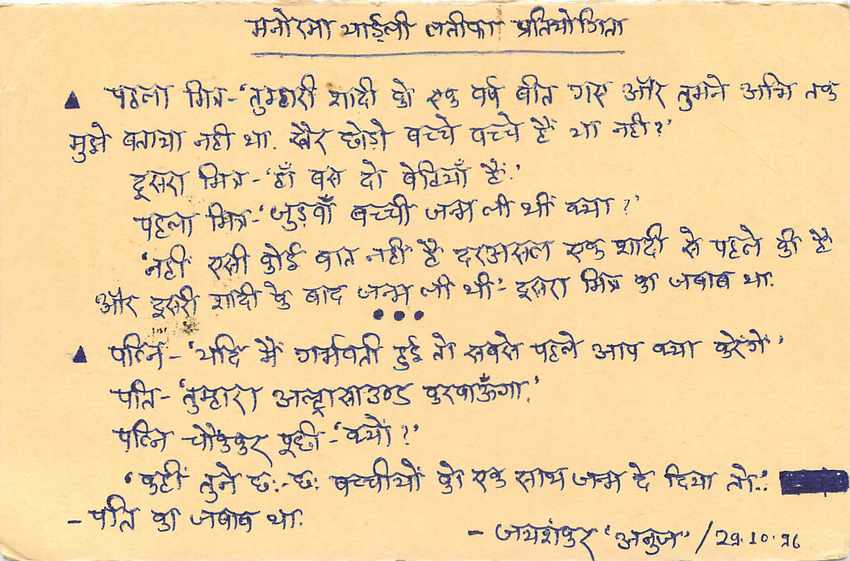 मनोरमा थाईली लतीफा प्रतियोगिता
▲ पहला मित्र-'तुम्हारी शादी को एक वर्ष बीत गए और तुमने अभि तक
मुझे बताया नही था. खैर छोड़ो बच्चे वच्चे हैं या नही?'
दूसरा मित्र-'हाँ बस दो बेटियाँ हैं.'
पहला मित्र-'जुड़वाँ बच्ची जन्म ली थीं क्या?'
'नही एसी कोई बात नही है दरअसल एक शादी से पहले की है
और दूसरी शादी के बाद जन्म ली थी'- दूसरा मित्र का जवाब था.
•••
▲ पत्नि-'यदि मैं गर्भवती हुई तो सबसे पहले आप क्या करेंगे'
पति-'तुम्हारा अल्ट्रासाउण्ड करवाऊँगा.'
पत्नि चौंककर पूछी-'क्यों?'
'कहीं तुने छः-छः बच्चीयों को एक साथ जन्म दे दिया तो..'
-पति का जवाब था.
- जयशंकर 'अनुज' /29.10.96